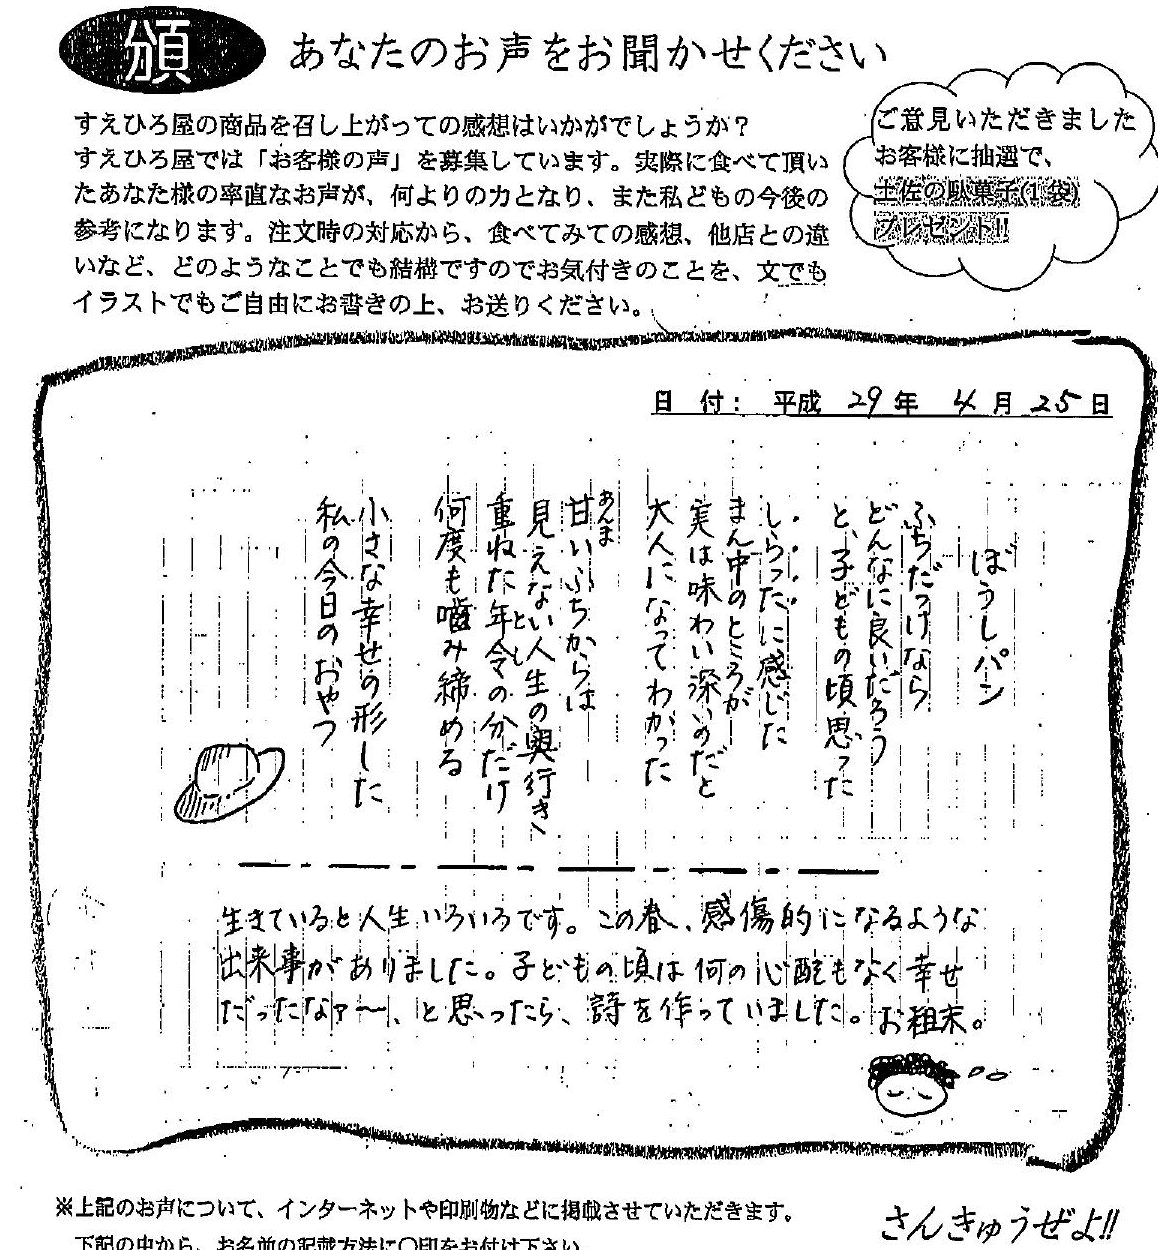 頒
あなたのお声をお聞かせください
すえひろ屋の商品を召し上がっての感想はいかがでしょうか？
すえひろ屋では「お客様の声」を募集しています。実際に食べて頂い
たあなた様の率直なお声が、何よりの力となり、また私どもの今後の
参考になります。注文時の対応から、食べてみての感想、他店との違
いなど、どのようなことでも結構ですのでお気付きのことを、文でも
イラストでもご自由にお書きの上、お送りください。
ご意見いただきました
お客様に抽選で、
土佐の駄菓子(1袋)
プレゼント!!
日 付： 平成 29 年 4 月 25 日
ぼうしパン
ふちだっけなら
どんなに良いだろう
と、子どもの頃思った
しらったに感じた
まん中のところが
実は味わい深いのだと
大人になってわかった
あんま
甘いふちからは
見えない人生の奥行き
重ねた年令の分だけ
何度も噛み締める
小さな幸せの形した
私の今日のおやつ
生きていると人生いろいろです。この春、感傷的になるような
出来事がありました。子どもの頃は何の心配もなく幸せ
だったなァ〜、と思ったら、詩を作っていました。お粗末。
※上記のお声について、インターネットや印刷物などに掲載させていただきます。
下記の中から、お名前の記載方法に〇印をお付け下さい
さんきゅうぜよ!!